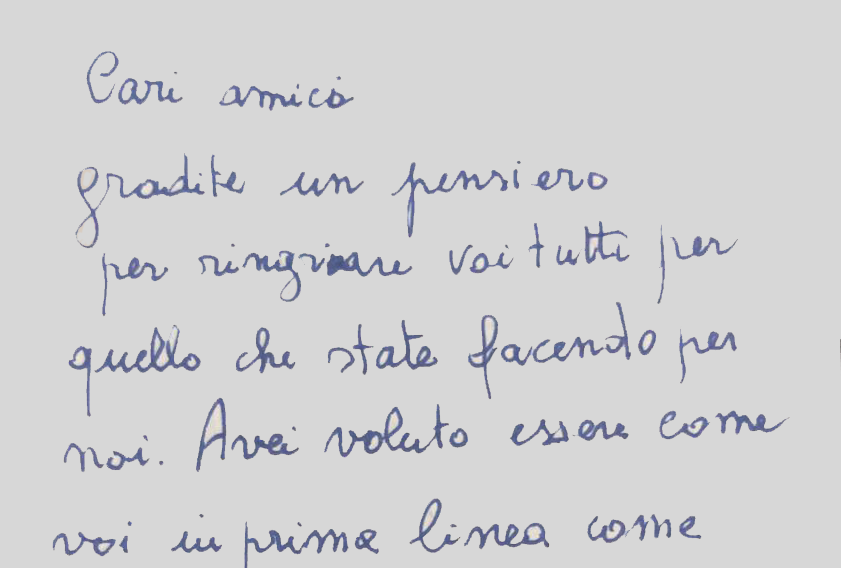 Cari amici
gradite un pensiero
per ringraziare voi tutti per
quello che state facendo per
noi. Avrei voluto essere come
voi in prima linea come